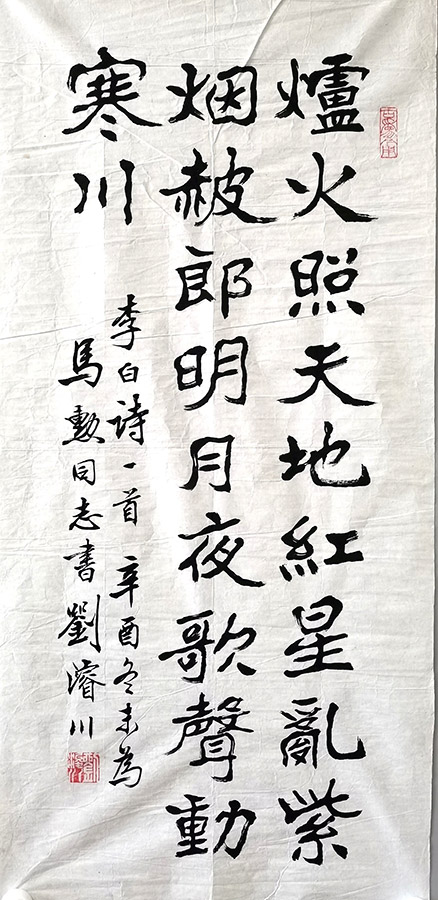 爐火照天地紅星亂紫
烟赦郎明月夜歌聲動
寒川
李白詩一首 辛酉冬末為
馬勲同志書劉濬川